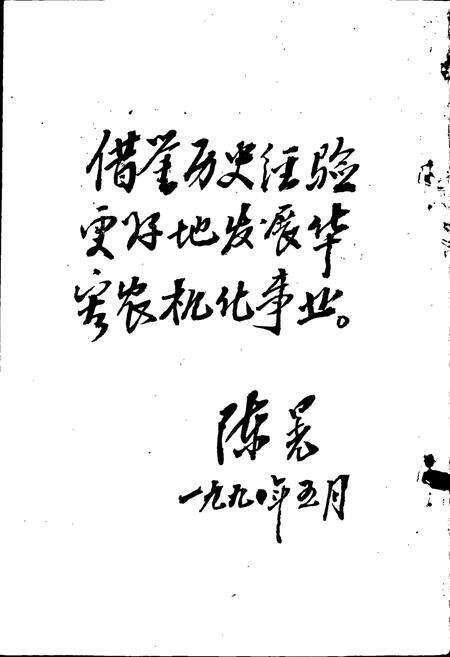 借鉴历史经验
更好地发展华
容农机化事业。
陈晃
一九九〇年五月